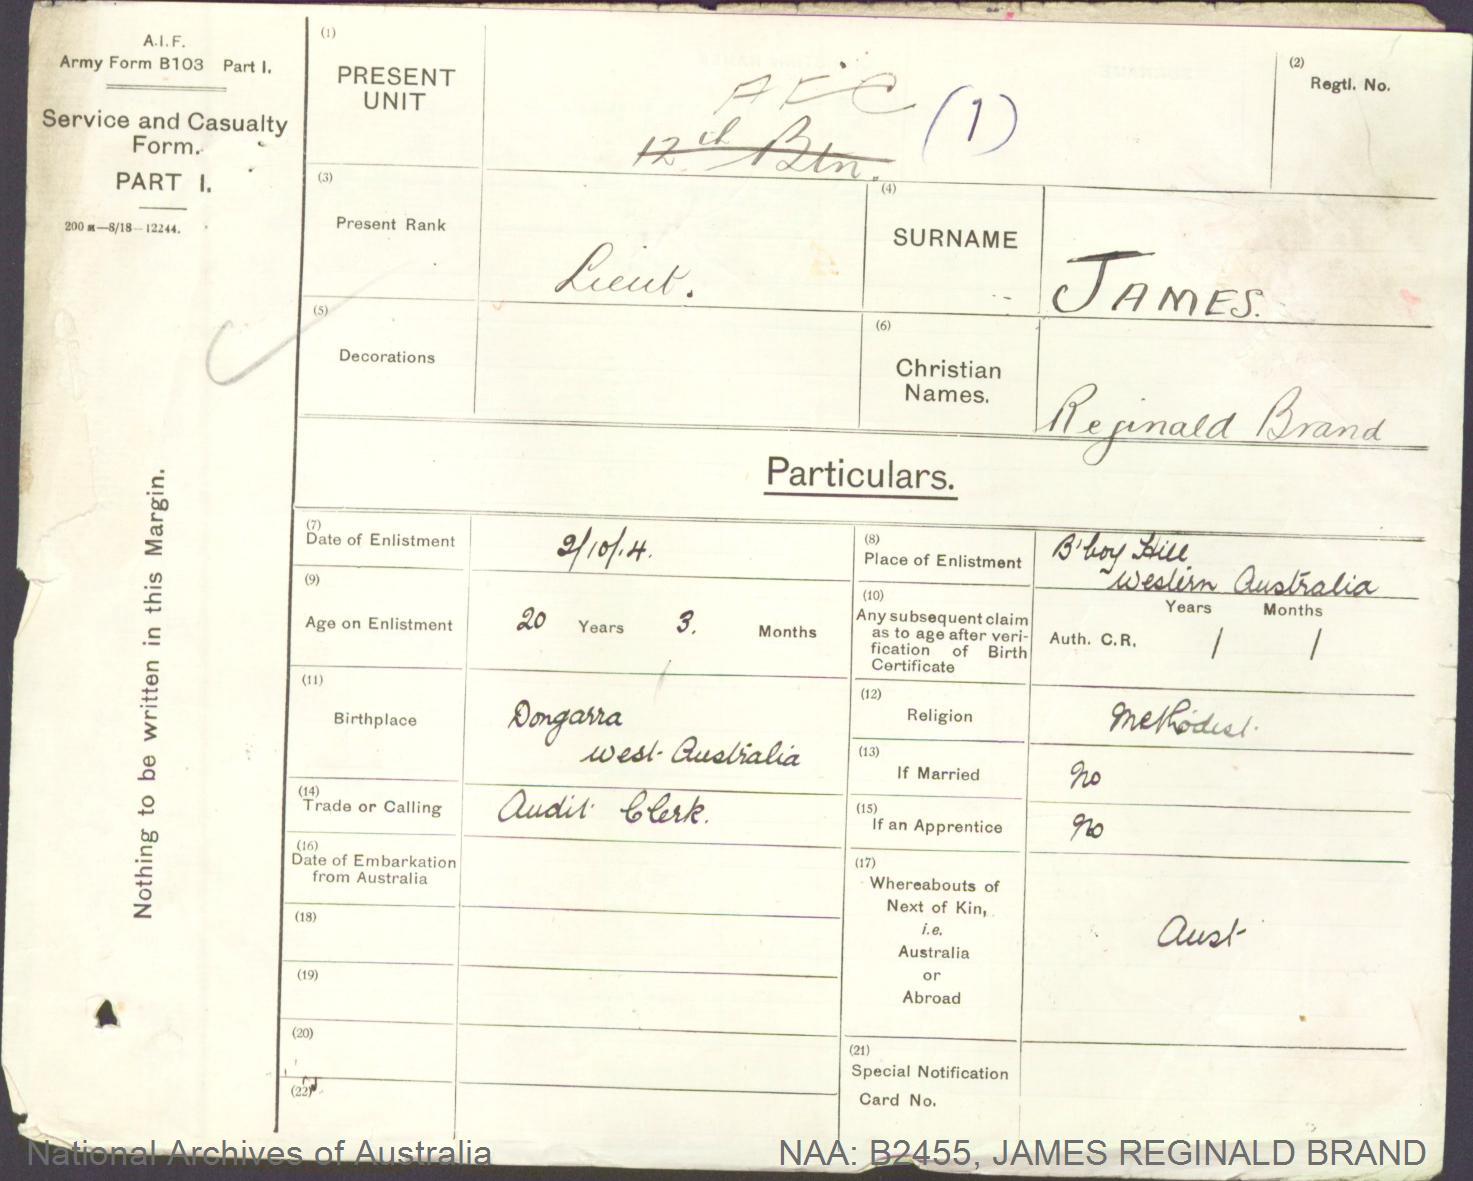 A.I.F.
Army Form B103 Part I.
Service and Casualty
Form.
PART I.
200 M—8/18—12244.
Nothing to be written in this Margin.
(1)
PRESENT
UNIT
A F C (1)
12th Btn.
(2)
Regtl. No.
(3)
Present Rank
Lieut.
(4)
SURNAME
JAMES.
(5)
Decorations
(6)
Christian
Names.
Reginald Brand
Particulars.
(7)
Date of Enlistment
2/10/14.
(8)
Place of Enlistment
B'boy Hill
Western Australia
(9)
Age on Enlistment
20 Years 3. Months
(10)
Any subsequent claim
as to age after veri-
fication of Birth
Certificate
Years Months
Auth. C.R. / /
(11)
Birthplace
Dongarra
West Australia
(12)
Religion
Methodist
(13)
If Married
No
(14)
Trade or Calling
Audit Clerk.
(15)
If an Apprentice
No
(16)
Date of Embarkation
from Australia
(17)
Whereabouts of
Next of Kin,
i.e.
Australia
or
Abroad
Aust
(18)
(19)
(20)
(21)
Special Notification
Card No.
(22)
National Archives of Australia
NAA: B2455, JAMES REGINALD BRAND